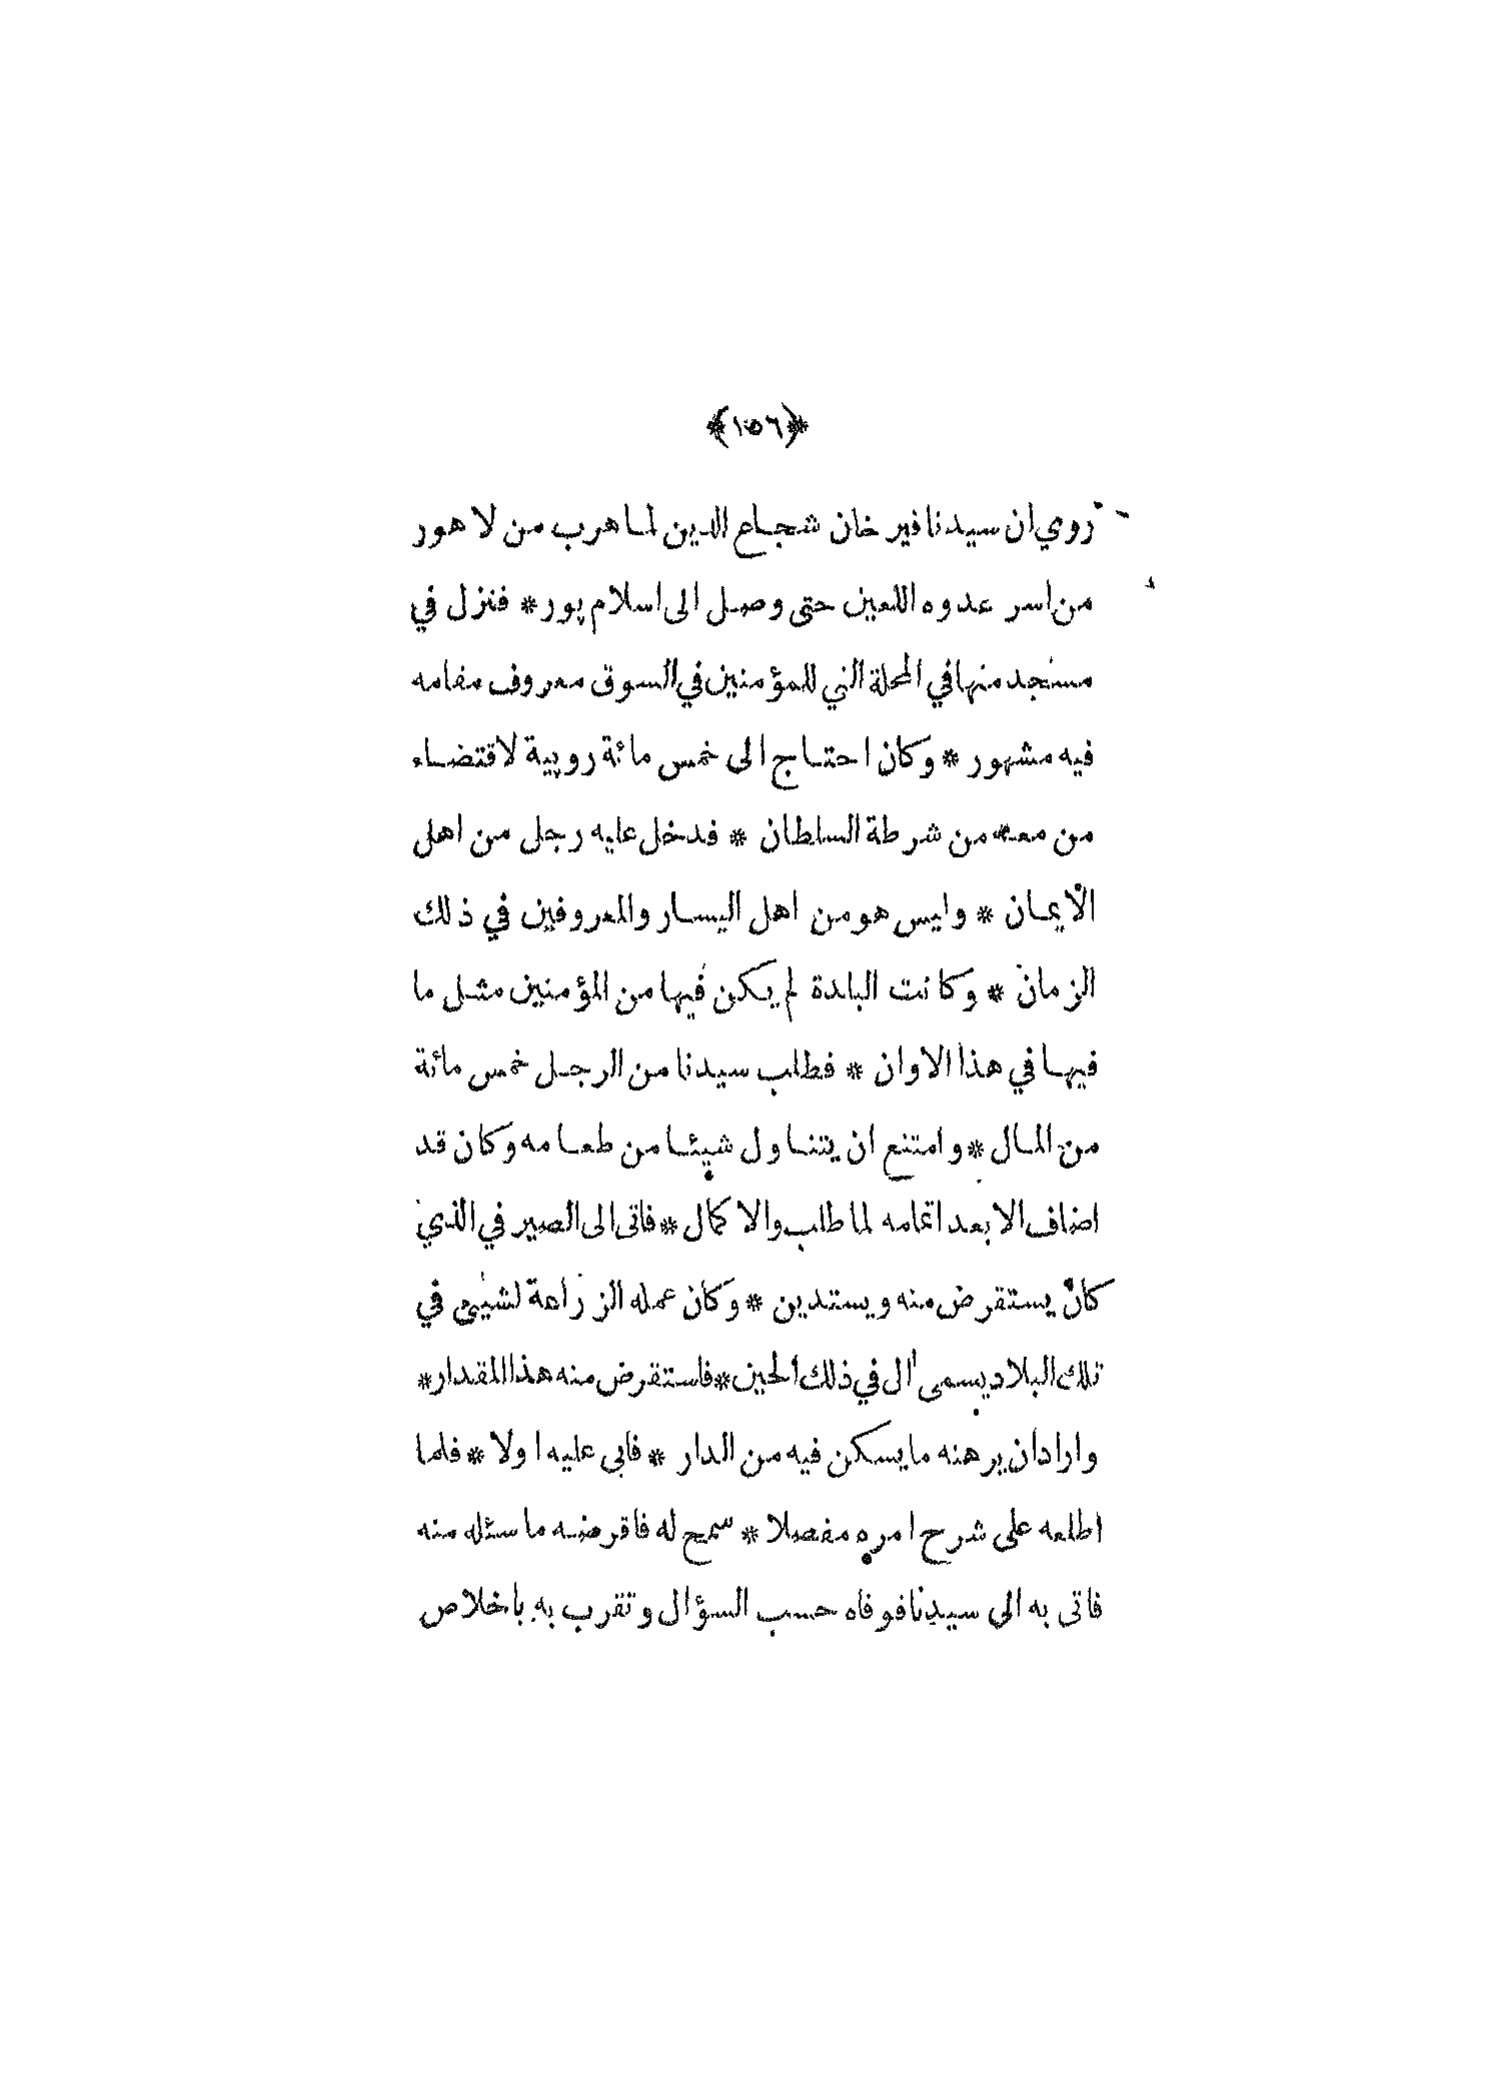 ﴿١٥٦﴾
روي ان سيدنا فير خان شجاع الدين لما هرب من لاهور
من اسر عدوه اللعين حتى وصل الى اسلام پور * فنزل في
مسجد منها في المحلة التي للمؤمنين في السوق معروف مقامه
فيه مشهور * وكان احتاج الى خمس مائة روپية لاقتضاء
من معه من شرطة السلطان * فدخل عليه رجل من اهل
الايمان * وليس هو من اهل اليسار والمعروفين في ذلك
الزمان * وكانت البلدة لم يكن فيها من المؤمنين مثل ما
فيها في هذا الاوان * فطلب سيدنا من الرجل خمس مائة
من المال * وامتنع ان يتناول شيئا من طعامه وكان قد
اضاف الا بعد اتمامه لما طلب والاكمال * فاتى الى الصيرفي الذي
كان يستقرض منه ويستدين * وكان عمله الزراعة لشيئ في
تلك البلاد يسمى أل في ذلك الحين * فاستقرض منه هذا المقدار *
واراد ان يرهنه ما يسكن فيه من الدار * فابى عليه اولا * فلما
اطلعه على شرح امره مفصلا * سمح له فاقرضه ما سئله منه
فاتى به الى سيدنا فوفاه حسب السؤال وتقرب به باخلاص